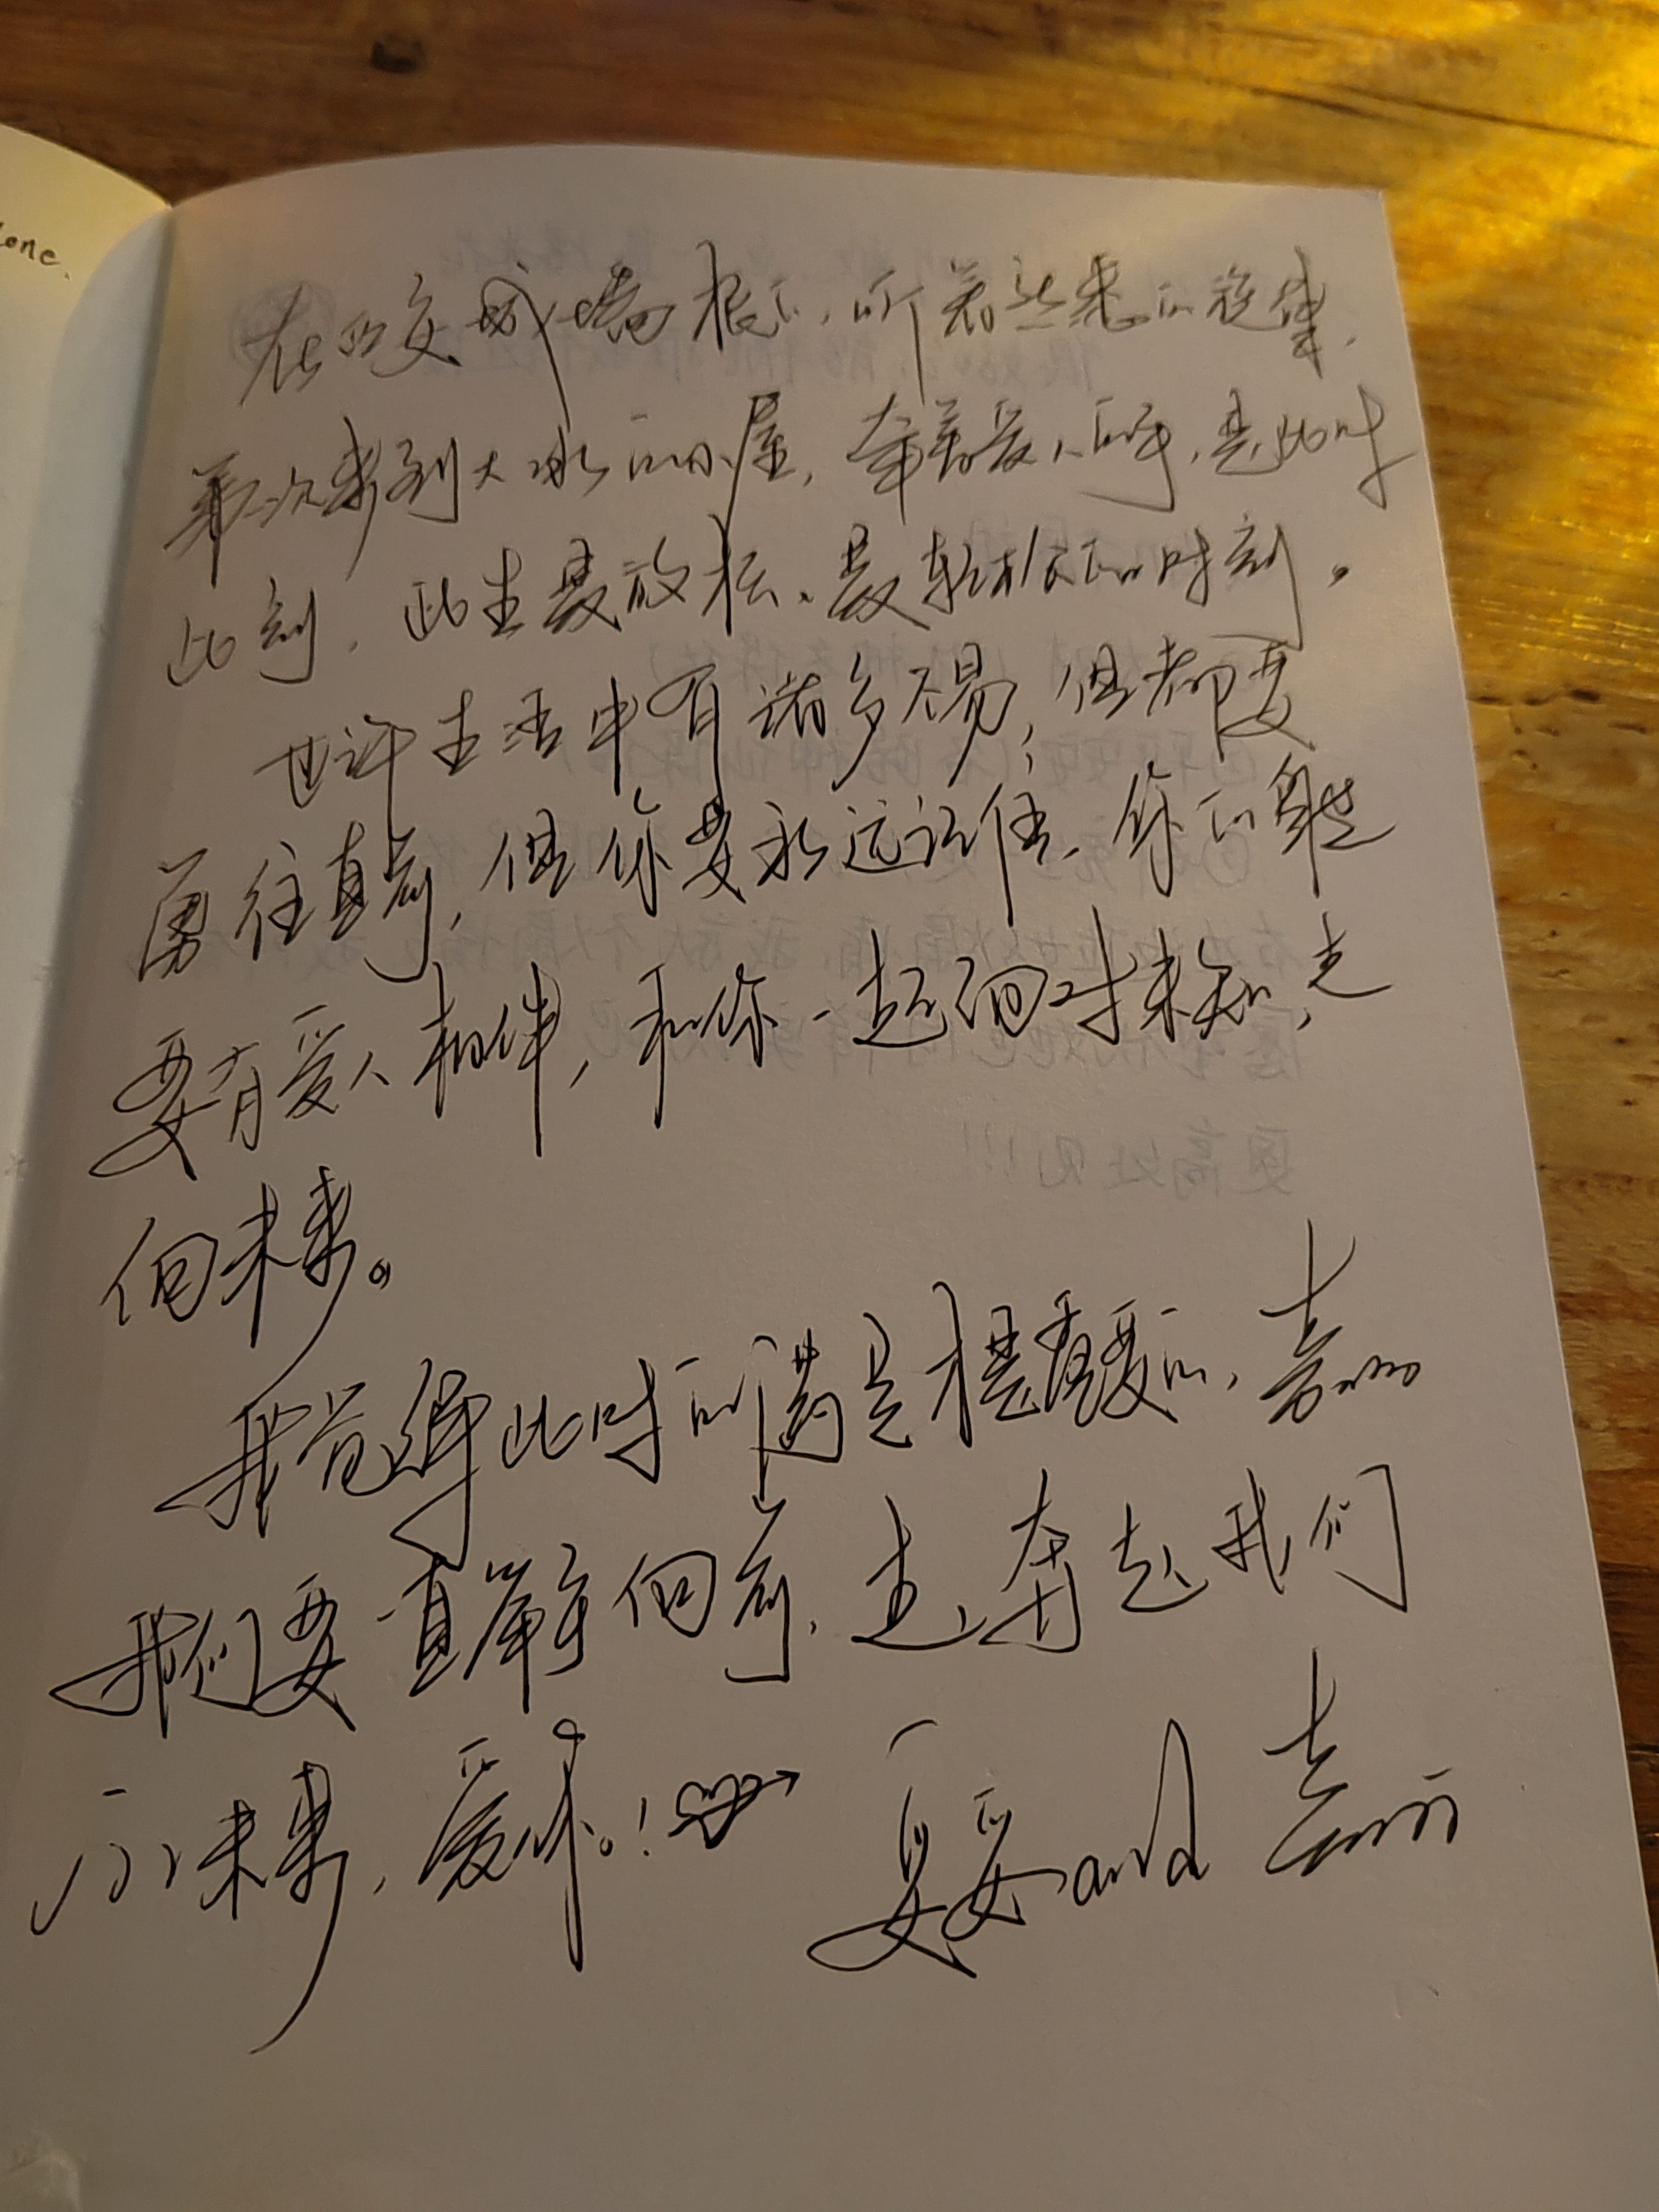 one.
在西安城墙根下，听着熟悉的旋律，
第一次来到大冰的小屋，牵着爱人的手，是此时
此刻，此生最放松、最轻松的时刻。
也许生活中有诸多不易，但都要
勇往直前，但你要永远记住，你的身边
要有爱人相伴，和你一起面对未知，走
向未来。
我觉得此时的满是想着爱的，
我们要一直牵手向前，走，奔赴我们
的未来，爱你。！
and